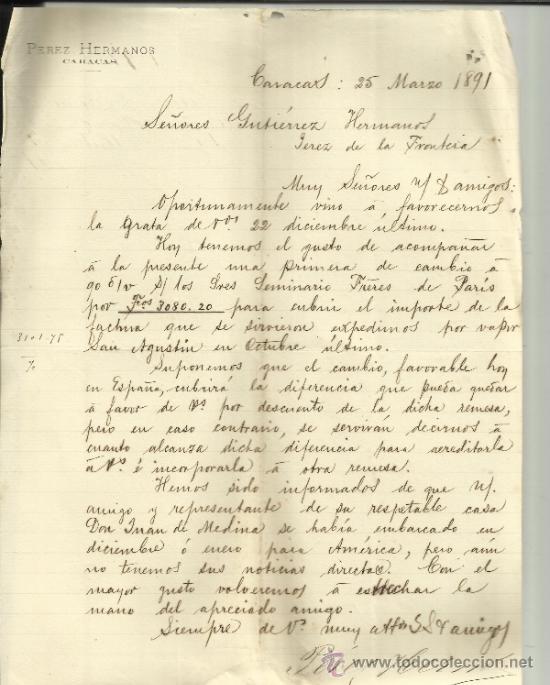 PEREZ HERMANOS
CARACAS
Caracas: 25 Marzo 1891
Señores Gutiérrez Hermanos
Jerez de la Frontera
Muy Señores n/ & amigos:
Oportunamente vino á favorecernos
la grata de Vds 22 diciembre último.
Hoy tenemos el gusto de acompañar
á la presente una primera de cambio á
90 d/v s/ los Sres Seminario Frères de París
por Fcos 3080.20 para cubrir el importe de la
factura que se sirvieron expedirnos por vapor
San Agustín en Octubre último.
Suponemos que el cambio, favorable hoy
en España, cubrirá la diferencia que pueda quedar
á favor de Vs por descuento de la dicha remesa,
pero en caso contrario, se servirán decirnos á
cuanto alcanza dicha diferencia para acreditarla
á Vs é incorporarla á otra remesa.
Hemos sido informados de que n/.
amigo y representante de su respetable casa
Don Juan de Medina se había embarcado en
diciembre ó enero para América, pero aún
no tenemos sus noticias directas. Con el
mayor gusto volveremos á estrechar la
mano del apreciado amigo.
Siempre de Vs muy attos S S & amigos
todocoleccion.net